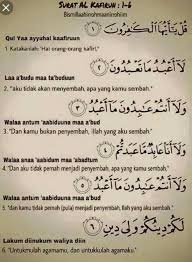 SURAT AL KAFIRUN : 1-6
Bismillaahirrohmaanirrohiim
قُلْ يَا أَيُّهَا الْكَافِرُونَ ۝١
Qul Yaa ayyuhal kaafiruun
1. Katakanlah: "Hai orang-orang kafir!,"
لَا أَعْبُدُ مَا تَعْبُدُونَ ۝٢
Laa a'budu maa ta'buduun
2. "aku tidak akan menyembah, apa yang kamu sembah."
وَلَا أَنْتُمْ عَابِدُونَ مَا أَعْبُدُ ۝٣
Walaa antum 'aabiduuna maa a'budu
3. "Dan kamu bukan penyembah, Ilah yang aku sembah."
وَلَا أَنَا عَابِدٌ مَا عَبَدْتُمْ ۝٤
Walaa anaa 'aabidum maa 'abadtum
4. "dan aku tidak pernah menjadi penyembah, apa yang kamu sembah."
وَلَا أَنْتُمْ عَابِدُونَ مَا أَعْبُدُ ۝٥
Walaa antum 'aabiduuna maa a'budu
5. "dan kamu tidak pernah (pula) menjadi penyembah, Ilah yang aku sembah."
لَكُمْ دِينُكُمْ وَلِيَ دِينِ ۝٦
Lakum diinukum waliya diin
6. "Untukmulah agamamu, dan untukkulah agamaku."